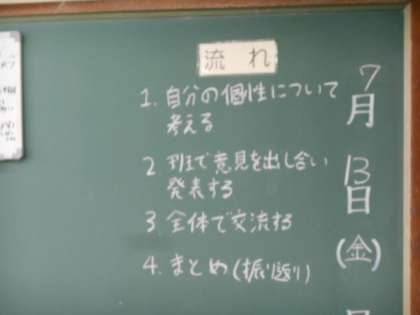 流れ
1. 自分の個性について
考える
2 班で意見を出し合い
発表する
3 全体で交流する
4. まとめ(振り返り)
7月13日(金)